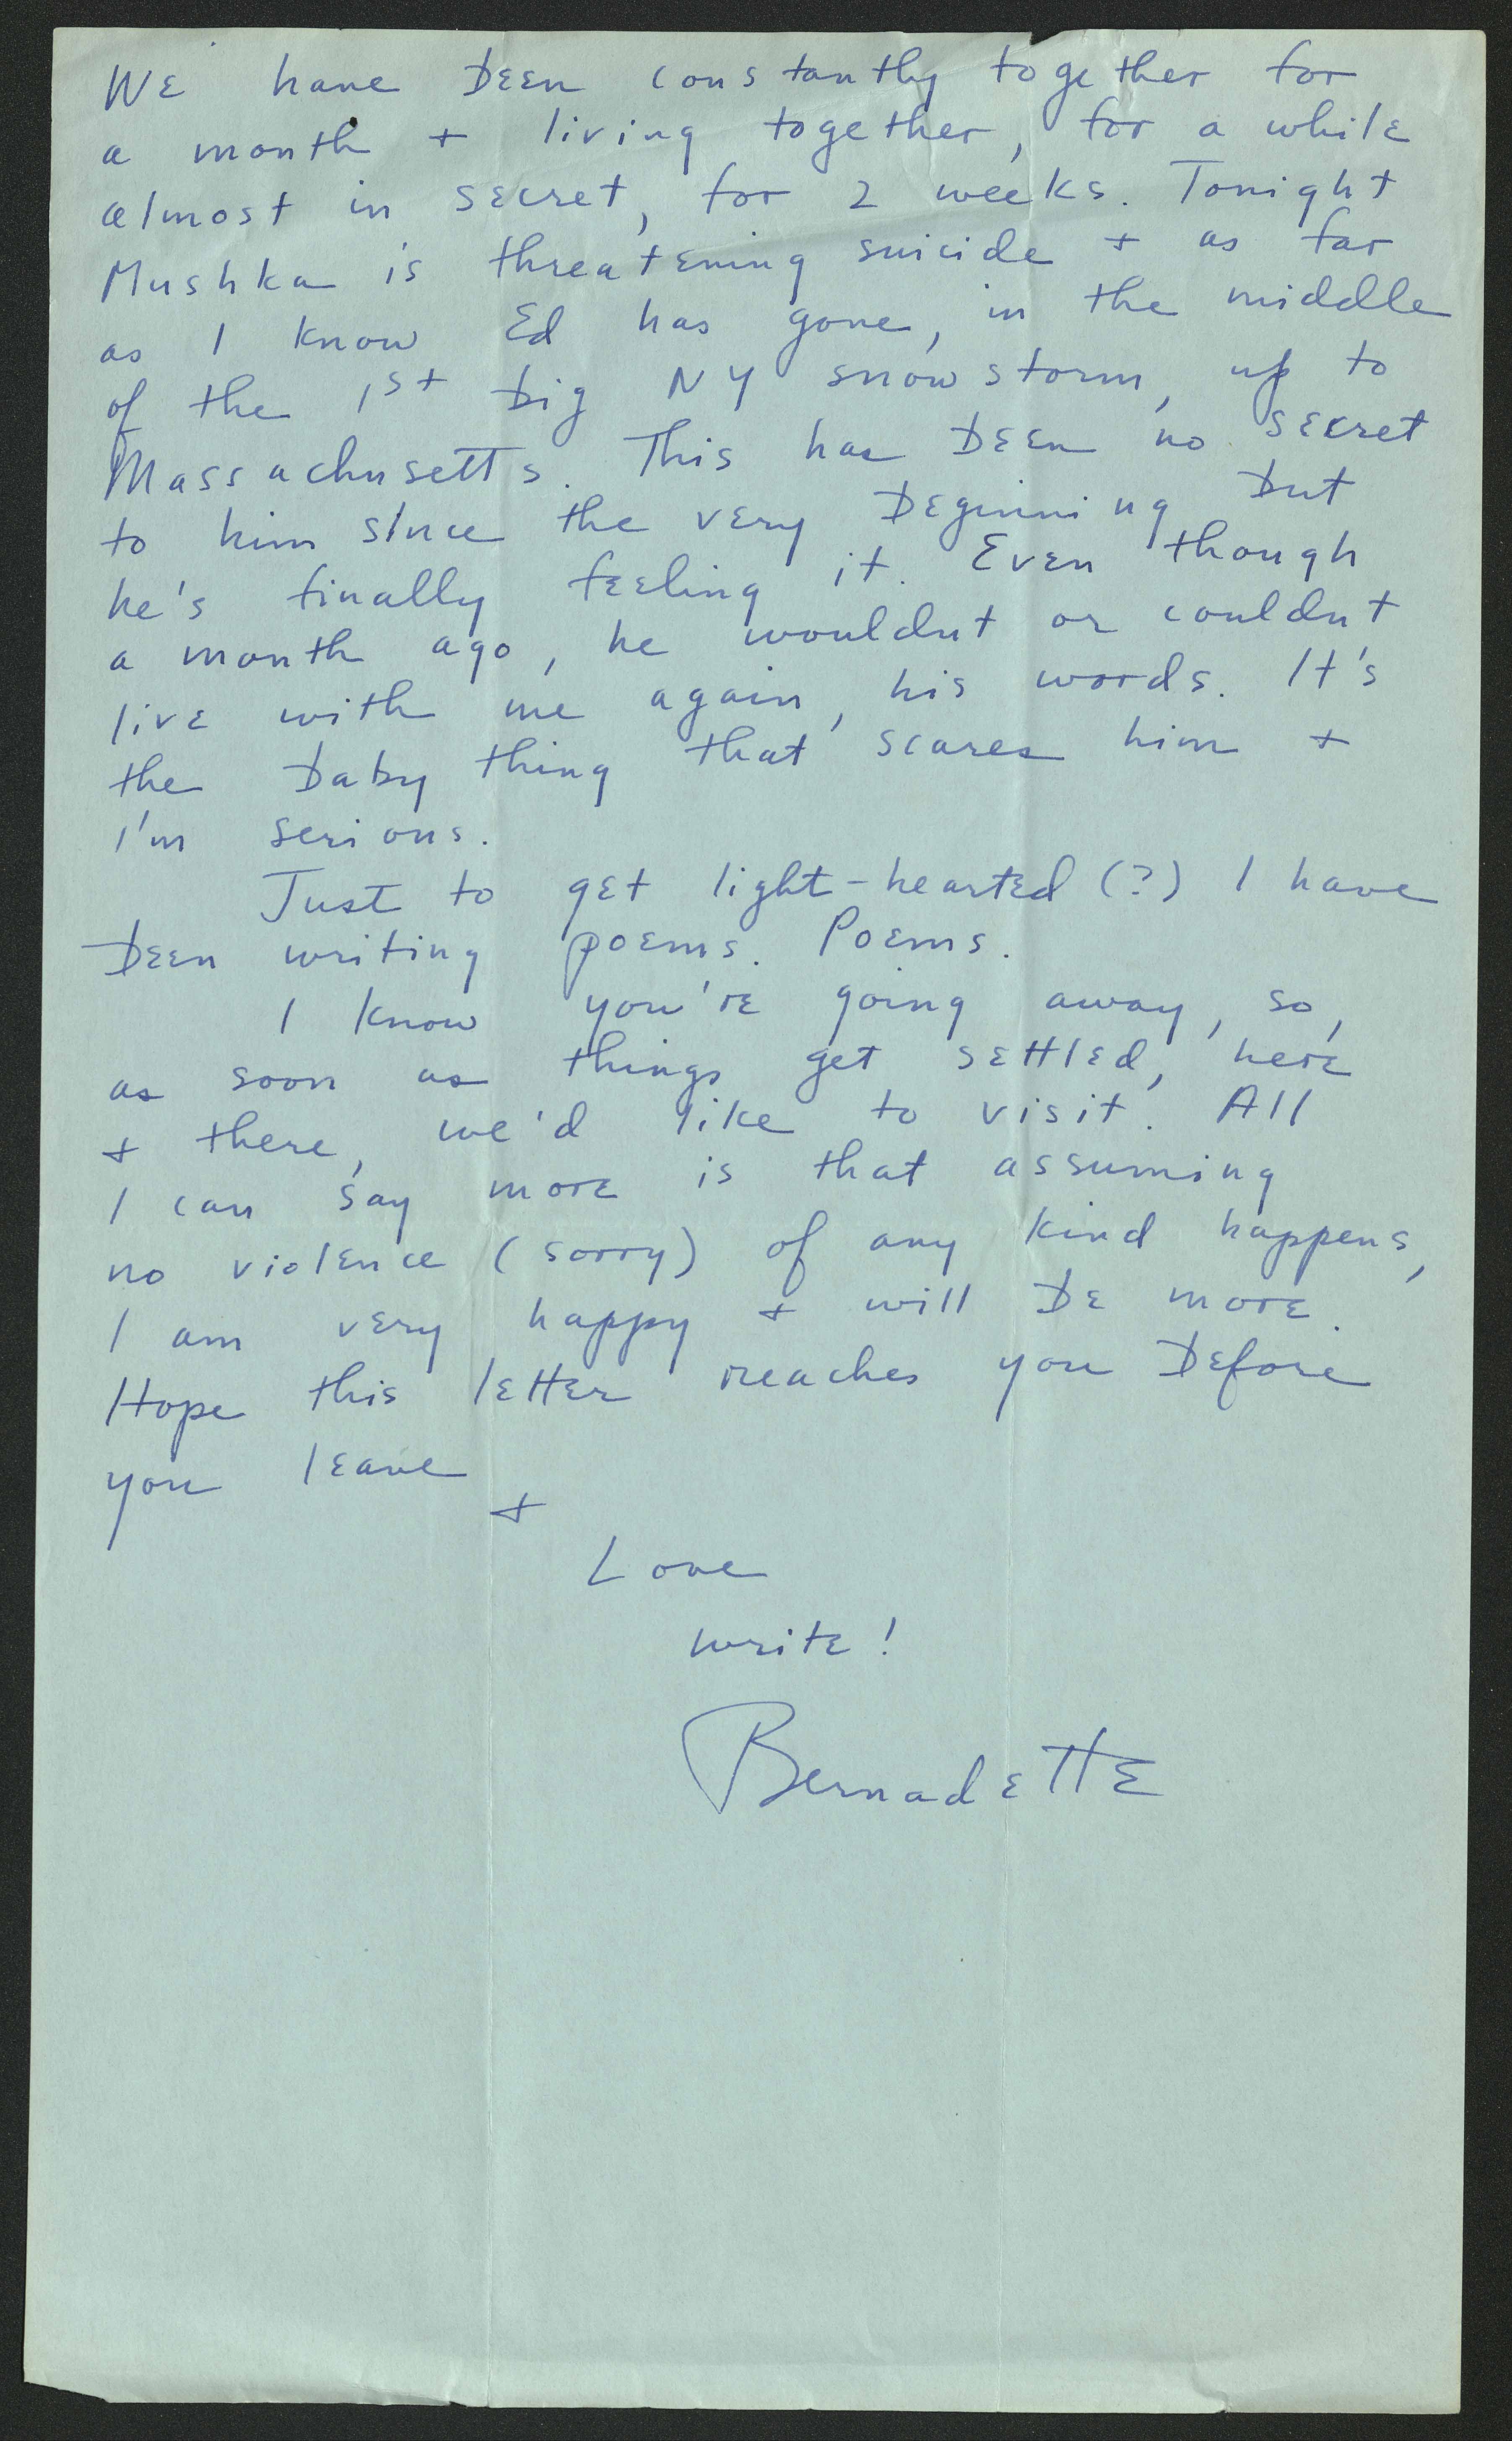 We have been constantly together for
a month + living together, for a while
almost in secret, for 2 weeks. Tonight
Mushka is threatening suicide + as far
as I know Ed has gone, in the middle
of the 1st big NY snowstorm, up to
Massachusetts. This has been no secret
to him since the very beginning but
he's finally feeling it. Even though
a month ago, he wouldnt or couldnt
live with me again, his words. It's
the baby thing that scares him +
I'm serious.
Just to get light-hearted (?) I have
been writing poems. Poems.
I know you're going away, so,
as soon as things get settled, here
+ there, we'd like to visit. All
I can say more is that assuming
no violence (sorry) of any kind happens,
I am very happy + will be more.
Hope this letter reaches you before
you leave
+
Love
write!
Bernadette